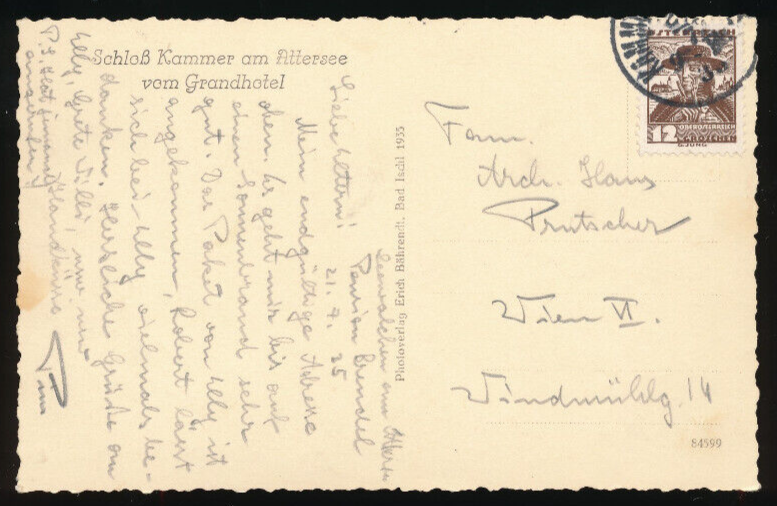 Schloß Kammer am Attersee
vom Grandhotel
Seewalchen am Attersee
Pension Brendel
21. 7. 35
Liebe Eltern!
Mein endgültige Adresse
oben. Es geht mir bis auf
einen Sonnenbrand sehr
gut. Das Paket von Elly ist
angekommen, Robert lässt
sich bei Elly vielmals be-
danken. Herzliche Grüße an
Elly, Grete, Willi, und
Handküsse
P.S. Hat jemand
angerufen?
Photoverlag Erich Bährendt, Bad Ischl 1935
ÖSTERREICH
12
OBERÖSTERREICH
GROSCHEN
Fam.
Arch. Hans
Prutscher
Wien VI.
Windmühlg. 14
84599